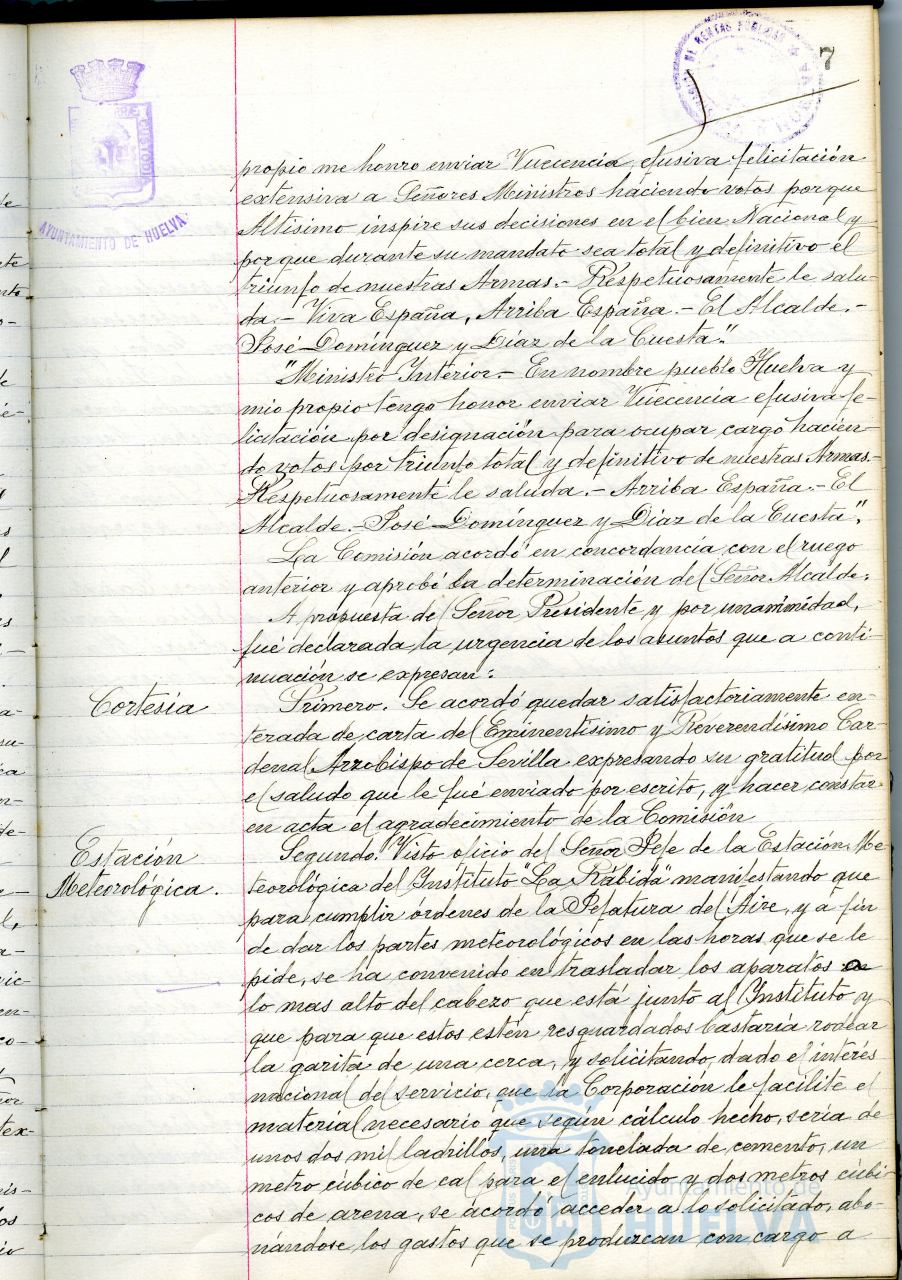 7
AYUNTAMIENTO DE HUELVA
propio me honro enviar Vuecencia efusiva felicitación
extensiva a Señores Ministros haciendo votos por que
Altisimo inspire sus decisiones en el bien Nacional y
por que durante su mandato sea total y definitivo el
triunfo de nuestras Armas.- Respetuosamente le salu-
da.- Viva España, Arriba España.- El Alcalde.-
José Domínguez y Díaz de la Cuesta".
"Ministro Interior.- En nombre pueblo Huelva y
mio propio tengo honor enviar Vuecencia efusiva fe-
licitación por designación para ocupar cargo hacien-
do votos por triunfo total y definitivo de nuestras Armas.-
Respetuosamente le saluda.- Arriba España.- El
Alcalde.- José Domínguez y Díaz de la Cuesta".
La Comisión acordó en concordancia con el ruego
anterior y aprobó la determinación del Señor Alcalde.
A propuesta del Señor Presidente y por unanimidad,
fué declarada la urgencia de los asuntos que a conti-
nuación se expresan:
Cortesía
Primero. Se acordó quedar satisfactoriamente en-
terada de carta del Eminentísimo y Reverendísimo Car-
denal Arzobispo de Sevilla expresando su gratitud por
el saludo que le fué enviado por escrito, y hacer constar
en acta el agradecimiento de la Comisión
Estación
Meteorológica.
Segundo. Visto oficio del Señor Jefe de la Estación Me
teorológica del Instituto "La Rábida" manifestando que
para cumplir órdenes de la Jefatura del Aire, y a fin
de dar los partes meteorológicos en las horas que se le
pide, se ha convenido en trasladar los aparatos a
lo mas alto del cabezo que está junto al Instituto y
que para que estos estén resguardados bastaría rodear
la garita de una cerca, y solicitando, dado el interés
nacional del servicio, que la Corporación le facilite el
material necesario que según cálculo hecho, sería de
unos dos mil ladrillos, una tonelada de cemento, un
metro cúbico de cal para el enlucido y dos metros cúbi-
cos de arena, se acordó acceder a lo solicitado, abo-
nándose los gastos que se produzcan con cargo a
Ayuntamiento de
HUELVA